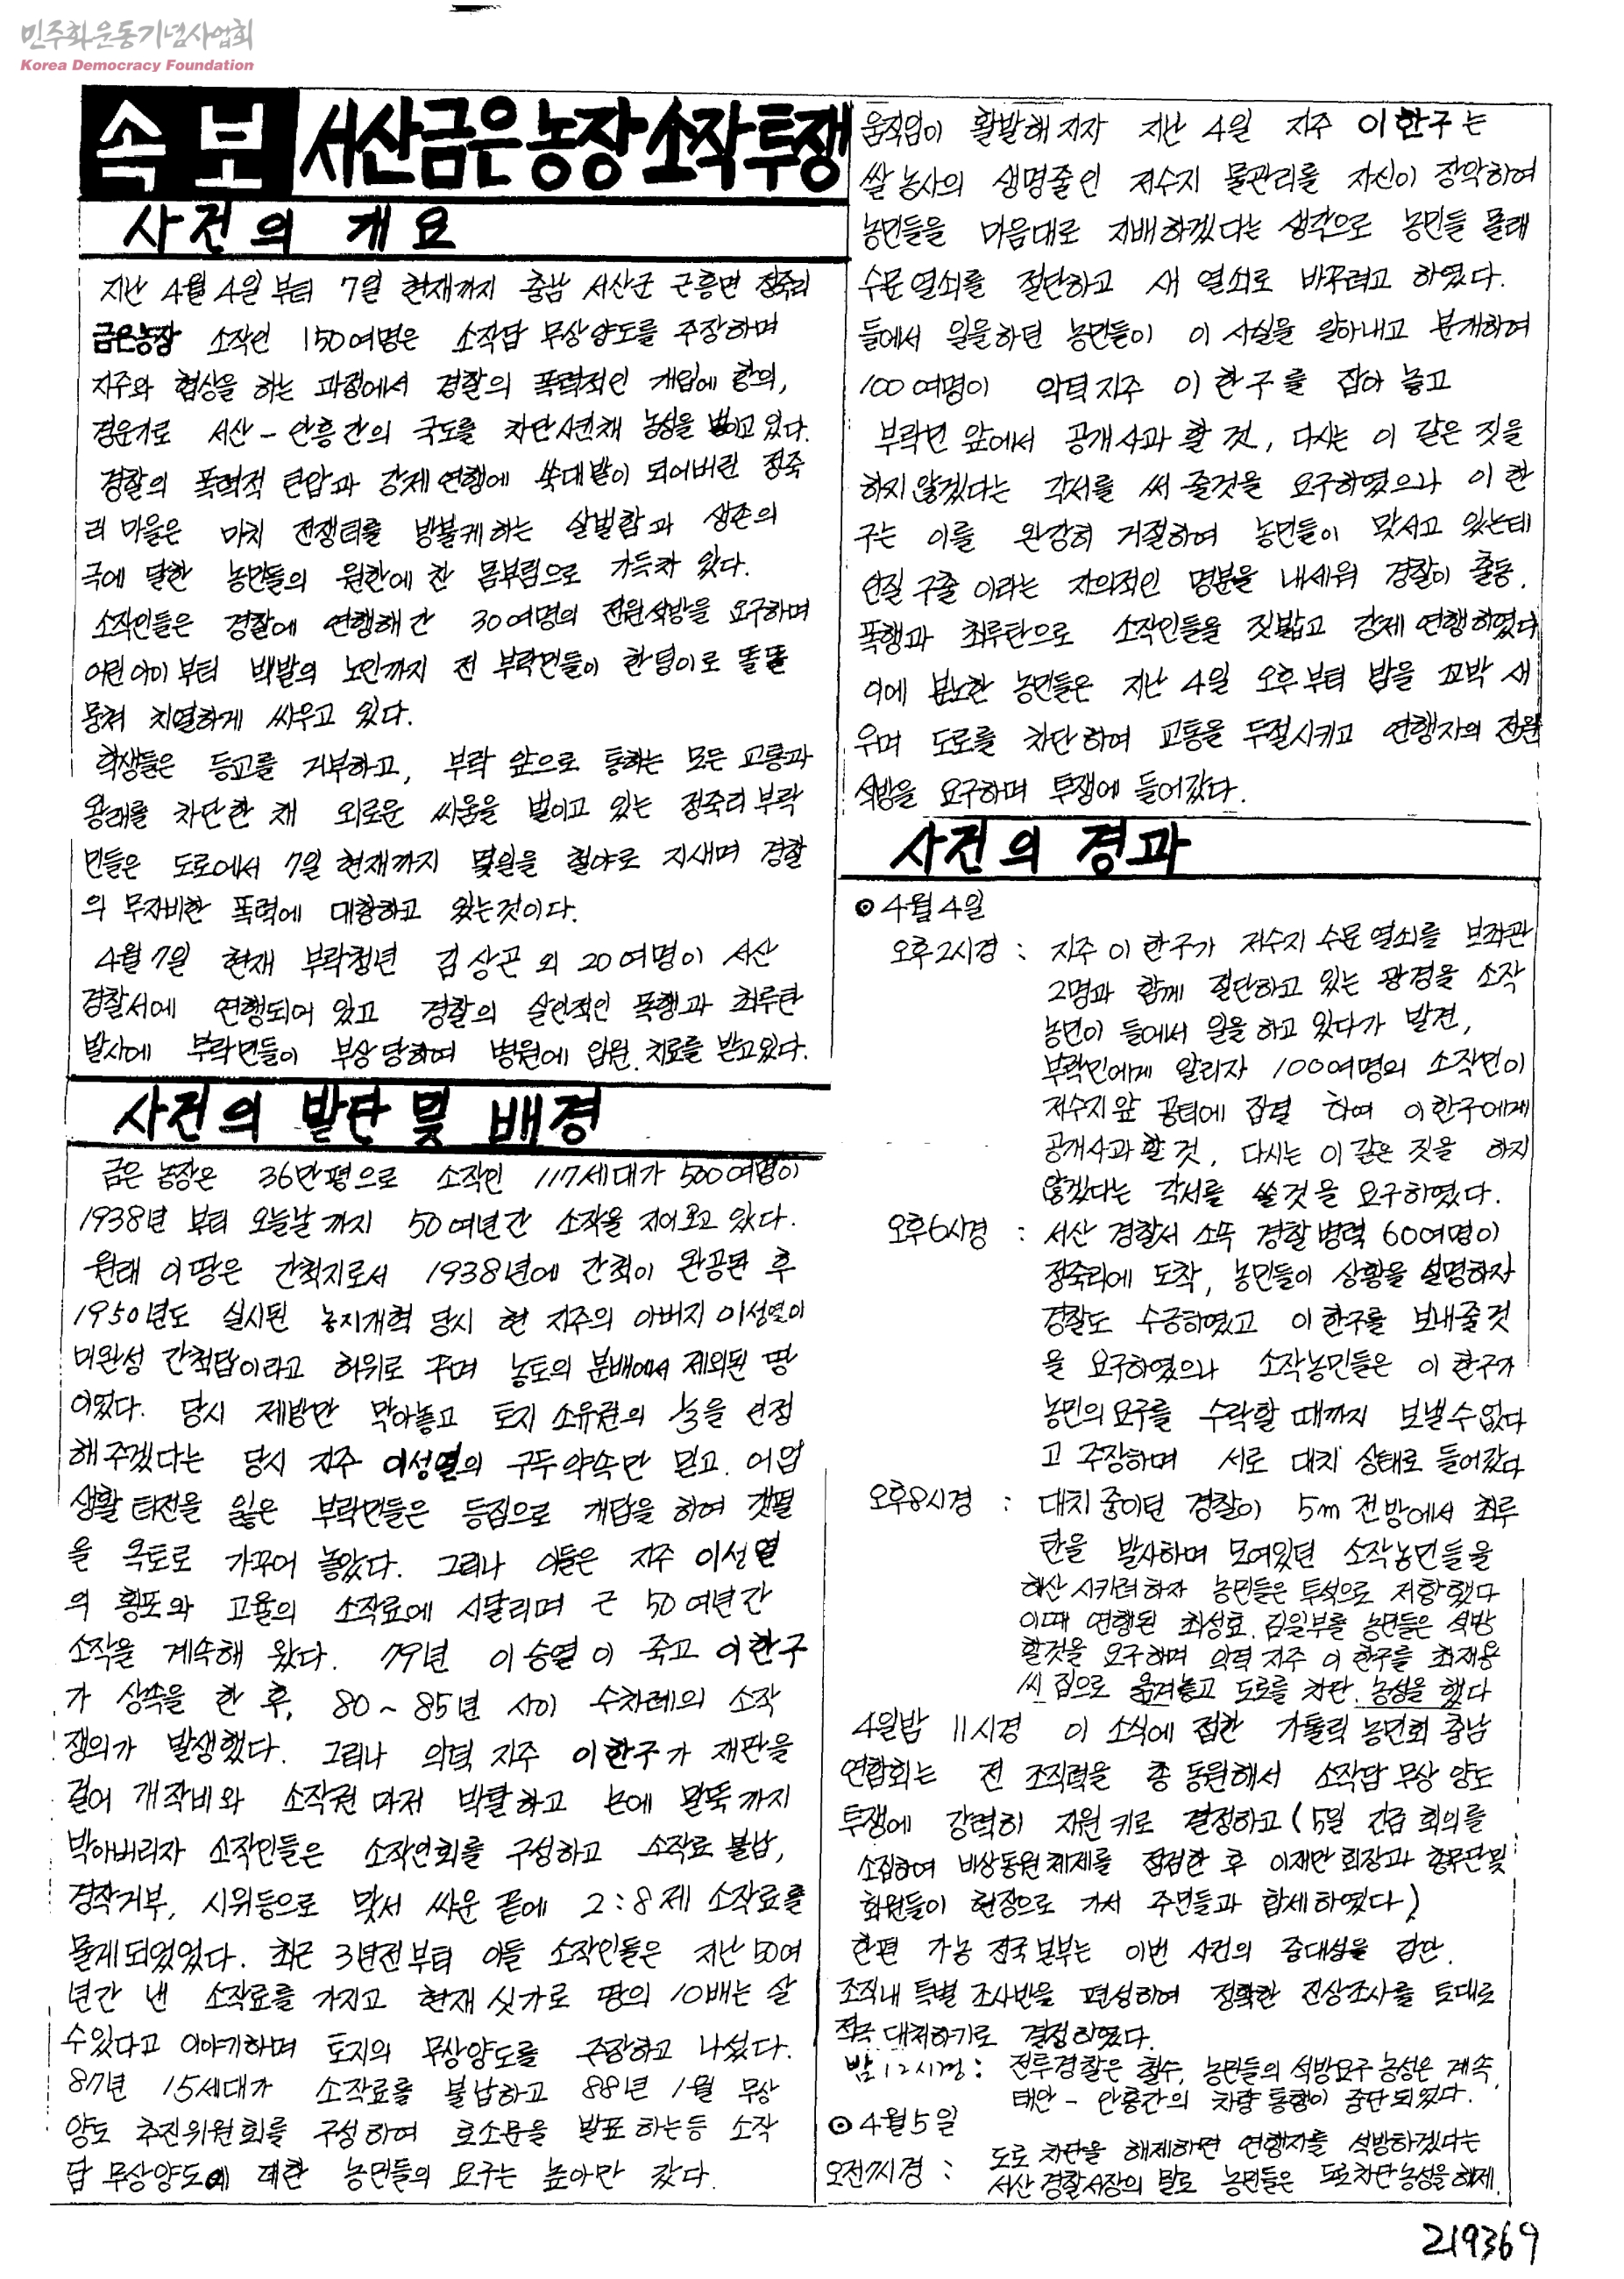 민주화운동기념사업회
Korea Democracy Foundation
속보 서산금은농장 소작투쟁
사건의 개요
지난 4월 4일 부터 7일 현재까지 충남 서산군 근흥면 정죽리
금은농장 소작인 150여명은 소작답 무상양도를 주장하며
지주와 협상을 하는 과정에서 경찰의 폭력적인 개입에 항의,
경운기로 서산 - 안흥간의 국도를 차단시킨채 농성을 벌이고 있다.
경찰의 폭력적 탄압과 강제연행에 쑥대밭이 되어버린 정죽
리 마을은 마치 전쟁터를 방불케하는 살벌함과 생존의
극에 달한 농민들의 원한에 찬 몸부림으로 가득차 있다.
소작인들은 경찰에 연행해간 30여명의 전원석방을 요구하며
어린아이부터 백발의 노인까지 전 부락민들이 한덩이로 똘똘
뭉쳐 치열하게 싸우고 있다.
학생들은 등교를 거부하고, 부락 앞으로 통하는 모든 교통과
왕래를 차단한 채 외로운 싸움을 벌이고 있는 정죽리 부락
민들은 도로에서 7일 현재까지 몇일을 철야로 지새며 경찰
의 무자비한 폭력에 대항하고 있는것이다.
4월 7일 현재 부락청년 김상곤 외 20여명이 서산
경찰서에 연행되어 있고 경찰의 살인적인 폭행과 최루탄
발사에 부락민들이 부상당하여 병원에 입원.치료를 받고있다.
사건의 발단 및 배경
금은 농장은 36만평으로 소작인 117세대가 500여명이
1938년 부터 오늘날 까지 50여년간 소작을 지어오고 있다.
원래 이 땅은 간척지로서 1938년에 간척이 완공된 후
1950년도 실시된 농지개혁 당시 현 지주의 아버지 이성열이
미완성 간척답이라고 허위로 꾸며 농토의 분배에서 제외된 땅
이었다. 당시 제방만 막아놓고 토지 소유권의 ⅓을 인정
해주겠다는 당시 지주 이성열의 구두약속만 믿고. 어업
생활 터전을 잃은 부락민들은 등짐으로 개답을 하여 갯펄
을 옥토로 가꾸어 놓았다. 그러나 이들은 지주 이성열
의 횡포와 고율의 소작료에 시달리며 근 50여년간
소작을 계속해 왔다. 79년 이승열이 죽고 이한구
가 상속을 한 후, 80~85년 사이 수차례의 소작
쟁의가 발생했다. 그러나 악덕 지주 이한구가 재판을
걸어 개작비와 소작권 마저 박탈하고 논에 말뚝까지
박아버리자 소작인들은 소작인회를 구성하고 소작료 불납,
경작거부, 시위등으로 맞서 싸운 끝에 2:8제 소작료를
물게되었었다. 최근 3년전부터 이들 소작인들은 지난 50여
년간 낸 소작료를 가지고 현재 싯가로 땅의 10배는 살
수있다고 이야기하며 토지의 무상양도를 주장하고 나섰다.
87년 15세대가 소작료를 불납하고 88년 1월 무상
양도 추진위원회를 구성하여 호소문을 발표하는등 소작
답 무상양도에 대한 농민들의 요구는 높아만 갔다.
움직임이 활발해지자 지난 4일 지주 이한구는
쌀농사의 생명줄인 저수지 물관리를 자신이 장악하여
농민들을 마음대로 지배하겠다는 생각으로 농민들 몰래
수문열쇠를 절단하고 새 열쇠로 바꾸려고 하였다.
들에서 일을하던 농민들이 이 사실을 알아내고 분개하여
100여명이 악덕지주 이한구를 잡아 놓고
부락민 앞에서 공개사과 할 것, 다시는 이 같은 짓을
하지 않겠다는 각서를 써 줄것을 요구하였으나 이한
구는 이를 완강히 거절하여 농민들이 맞서고 있는데
인질 구출 이라는 자의적인 명분을 내세워 경찰이 출동.
폭행과 최루탄으로 소작인들을 짓밟고 강제 연행하였다
이에 분노한 농민들은 지난 4일 오후부터 밤을 꼬박 새
우며 도로를 차단하여 교통을 두절시키고 연행자의 전원
석방을 요구하며 투쟁에 들어갔다.
사건의 경과
◉ 4월 4일
오후2시경 : 지주 이한구가 저수지 수문열쇠를 보좌관
2명과 함께 절단하고 있는 광경을 소작
농민이 들에서 일을 하고 있다가 발견,
부락민에게 알리자 100여명의 소작인이
저수지앞 공터에 집결 하여 이한구에게
공개사과할 것, 다시는 이 같은 짓을 하지
않겠다는 각서를 쓸것을 요구하였다.
오후6시경 : 서산 경찰서 소속 경찰 병력 60여명이
정죽리에 도착, 농민들이 상황을 설명하자
경찰도 수긍하였고 이한구를 보내줄것
을 요구하였으나 소작농민들은 이한구가
농민의요구를 수락할때까지 보낼수없다
고 주장하며 서로 대치 상태로 들어갔다
오후8시경 : 대치중이던 경찰이 5m 전방에서 최루
탄을 발사하며 모여있던 소작농민들을
해산시키려하자 농민들은 투석으로 저항했다
이때 연행된 최성호. 김일부를 농민들은 석방
할것을 요구하며 악덕 지주 이한구를 최재용
씨 집으로 옮겨놓고 도로를 차단. 농성을 했다
4일밤 11시경 이 소식에 접한 가톨릭 농민회 충남
연합회는 전 조직력을 총 동원해서 소작답 무상 양도
투쟁에 강력히 지원키로 결정하고 (5일 긴급 회의를
소집하여 비상동원체제를 점검한 후 이재만 회장과 총무단및
회원들이 현장으로 가서 주민들과 합세하였다)
한편 가농 전국본부는 이번 사건의 중대성을 감안.
조직내 특별 조사반을 편성하여 정확한 진상조사를 토대로
적극 대처하기로 결정하였다.
밤12시경 : 전투경찰은 철수. 농민들의 석방요구농성은 계속.
태안 - 안흥간의 차량 통행이 중단되었다.
◉ 4월5일
오전7시경 : 도로 차단을 해제하면 연행자를 석방하겠다는
서산 경찰서장의 말로 농민들은 도로차단농성을해제.
219369